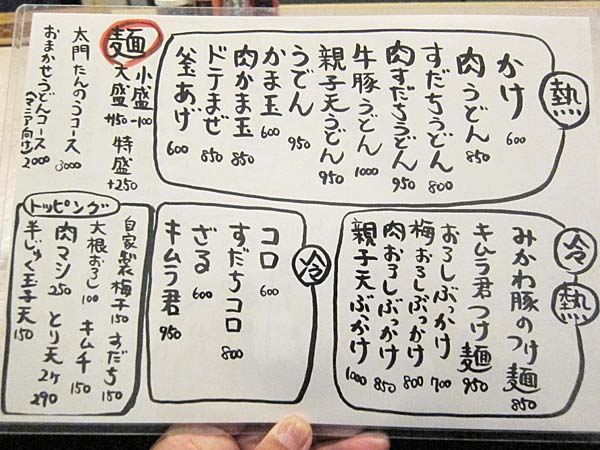 熱
かけ 600
肉うどん 850
すだちうどん 800
肉すだちうどん 950
牛豚うどん 1000
親子天うどん 950
うどん 950
かま玉 600
肉かま玉 850
ドテまぜ 850
釜あげ 600
麺
小盛 -100
大盛 +150
特盛 +250
太門たんのうコース 3000
おまかせうどんコース 2000
(マニア向け)
冷
熱
みかわ豚のつけ麺 850
キムラ君つけ麺 950
おろしぶっかけ 700
梅おろしぶっかけ 800
肉おろしぶっかけ 850
親子天ぶっかけ 1000
冷
コロ 600
すだちコロ 800
ざる 600
キムラ君 950
トッピング
自家製梅干 150
すだち 150
大根おろし 100
キムチ 150
肉マシ 250
とり天 2ヶ 290
半じゅく玉子天 150